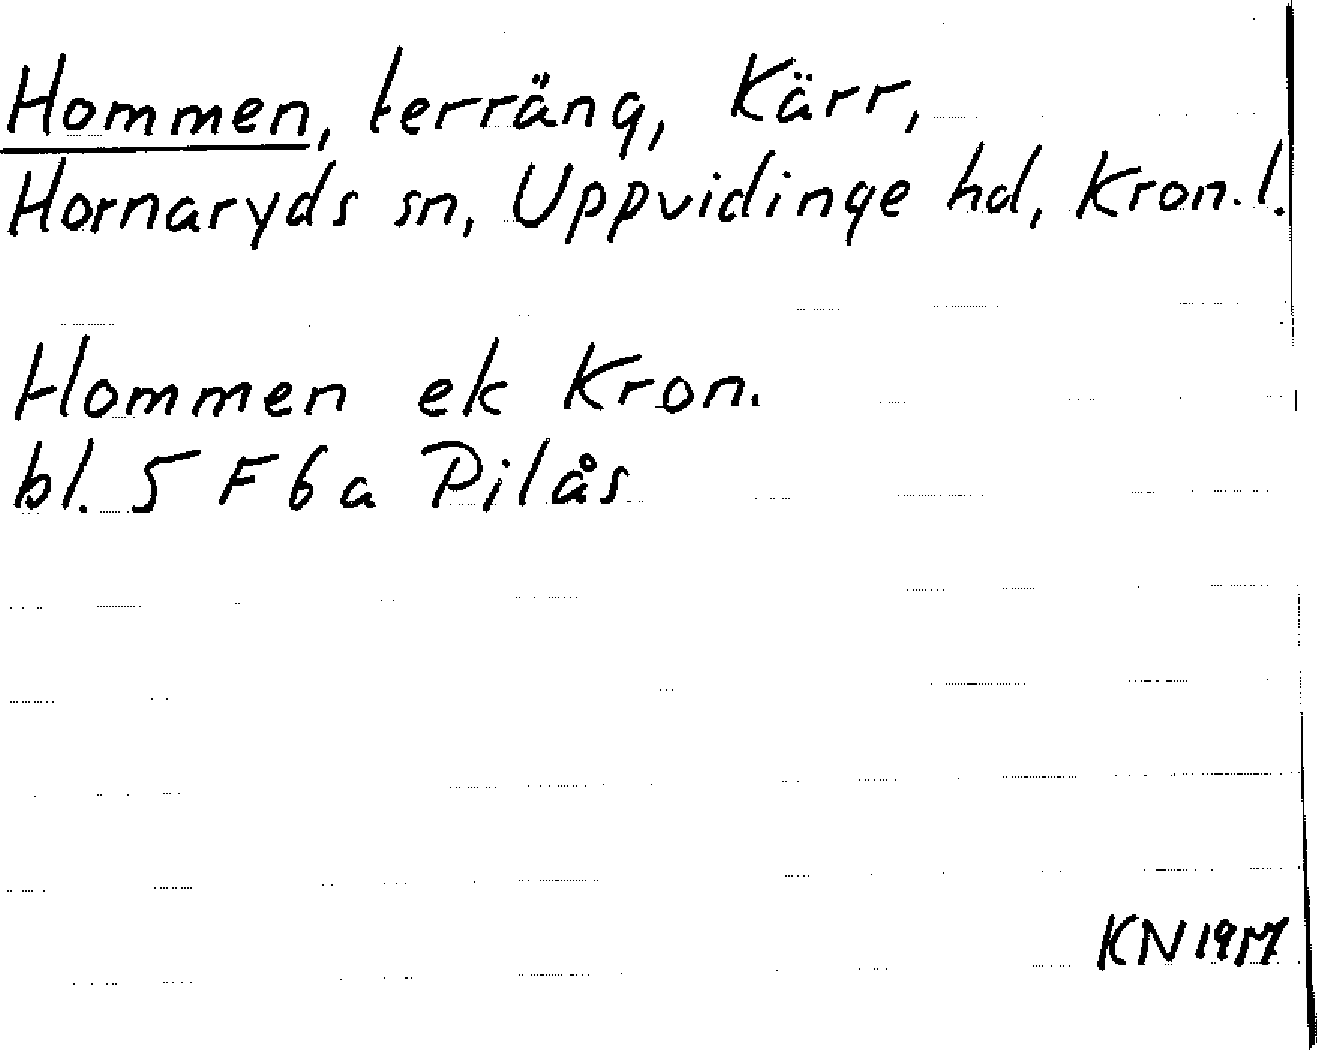 Hommen, terräng, Kärr,
Hornaryds sn, Uppvidinge hd, Kron. l.
Hommen ek Kron.
bl. 5 F 6 a Pilås
KN